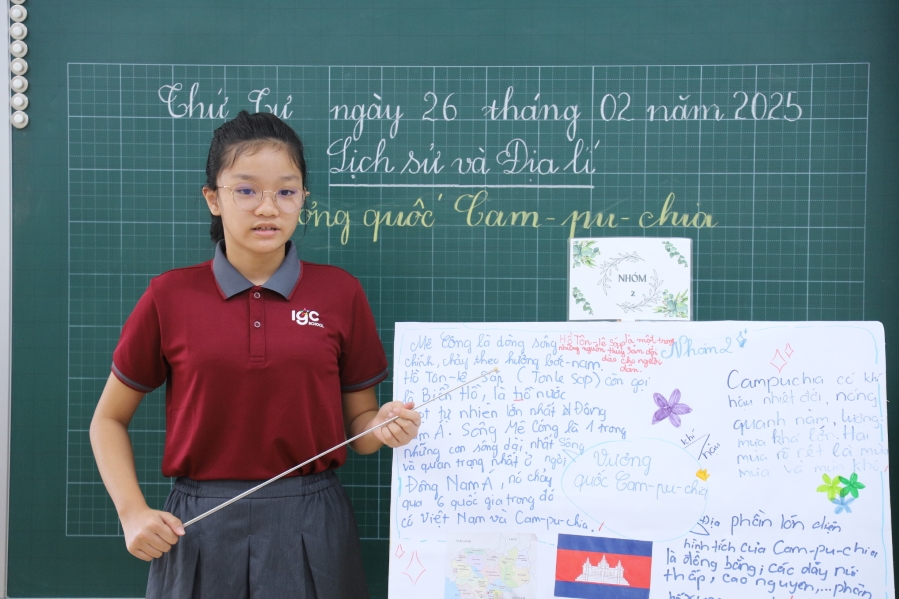 Thứ Tư ngày 26 tháng 02 năm 2025
Lịch sử và Địa lí
ơng quốc Cam-pu-chia
IGC
SCHOOL
NHÓM
2
Nhóm 2
Mê Công là dòng sông
chính, chảy theo hướng bắc-nam.
Hồ Tôn-lê Sáp (Tonle Sap) còn gọi
là Biển Hồ, là hồ nước
ngọt tự nhiên lớn nhất ở Đông
Nam Á. Sông Mê Công là 1 trong
những con sông dài nhất
và quan trọng nhất ở
Đông Nam Á, nó chảy
qua 6 quốc gia trong đó
có Việt Nam và Cam-pu-chia.
Hồ Tôn-lê Sáp là một trong
những nguồn thủy sản dồi
dào cho người
dân.
Vương
quốc Cam-pu-chia
khí
hậu
Campuchia có khí
hậu nhiệt đới, nóng
quanh năm, lượng
mưa khá lớn. Hai
mùa rõ rệt là mùa
mưa và mùa khô
Địa
hình
phần lớn diện
tích của Cam-pu-chia
là đồng bằng; các dãy núi
thấp, cao nguyên,...phân